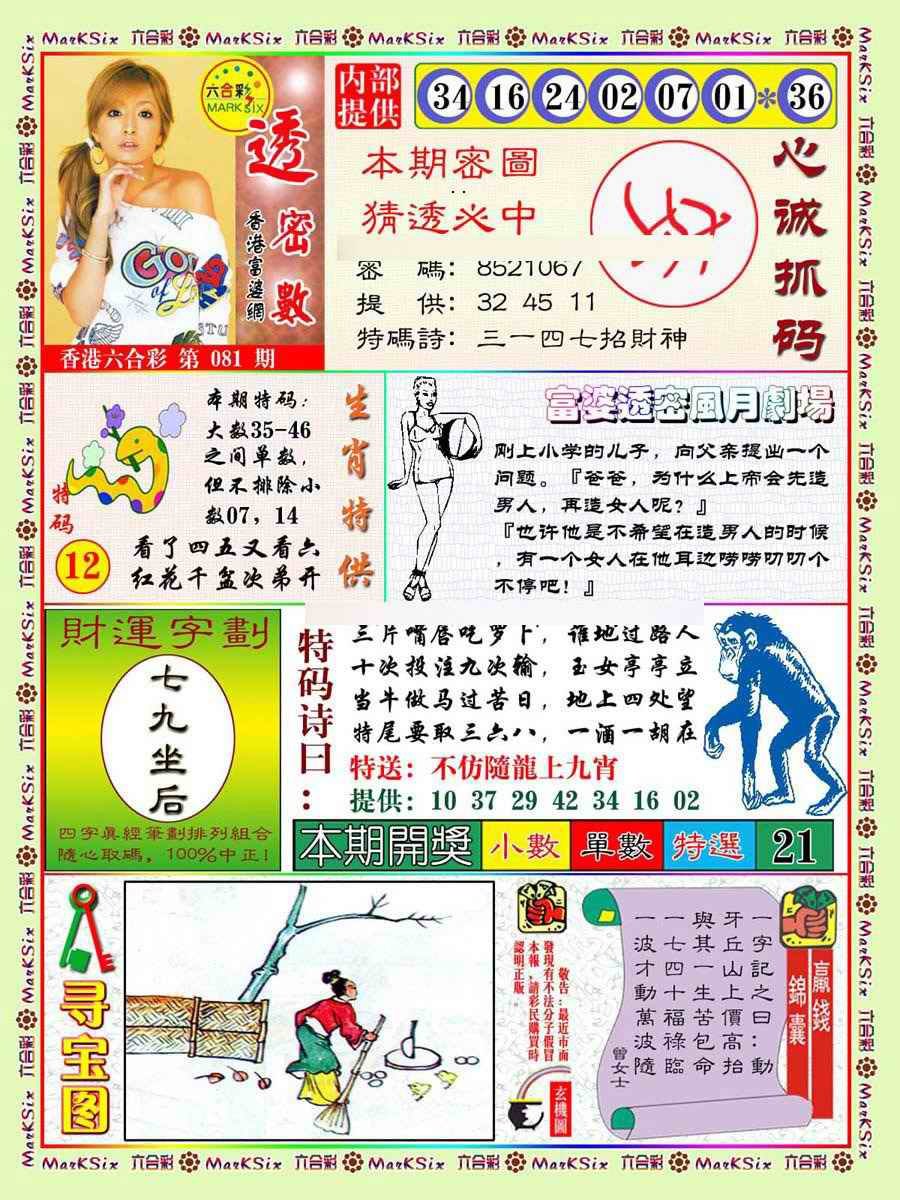 MarKSix 六合彩 MarKSix 六合彩 MarKSix 六合彩 MarKSix 六合彩 MarKSix 六合彩
六合彩
MARK SIX
透密數
香港富婆網
香港六合彩 第 081 期
内部
提供
34 16 24 02 07 01 * 36
本期密圖
猜透必中
密 碼: 8521067
提 供: 32 45 11
特碼詩: 三一四七招財神
心诚抓码
本期特码:
大数35-46
之间单数,
但不排除小
数07, 14
看了四五又看六
红花千盆次弟开
生肖特供
特码
12
富婆透密風月劇場
刚上小学的儿子, 向父亲提出一个
问题。『爸爸, 为什么上帝会先造
男人, 再造女人呢? 』
『也许他是不希望在造男人的时候
, 有一个女人在他耳边唠唠叨叨个
不停吧! 』
財運字劃
七九坐后
四字真經筆劃排列組合
隨心取碼, 100%中正!
特码诗曰:
三片嘴唇吃萝卜, 谁地过路人
十次投注九次输, 玉女亭亭立
当牛做马过苦日, 地上四处望
特尾要取三六八, 一酒一胡在
特送: 不仿隨龍上九宵
提供: 10 37 29 42 34 16 02
本期開獎 小數 單數 特選 21
寻宝图
敬告:最近市面
發現有不法分子假冒
本報,請彩民購買時
認明正版。
玄機圖
贏錢
錦囊
一字記之曰:動
牙丘山上價高抬
與其一生苦包命
一七四十福祿臨
一波才動萬波隨
曾女士
MarKSix 六合彩 MarKSix 六合彩 MarKSix 六合彩 MarKSix 六合彩 MarKSix 六合彩